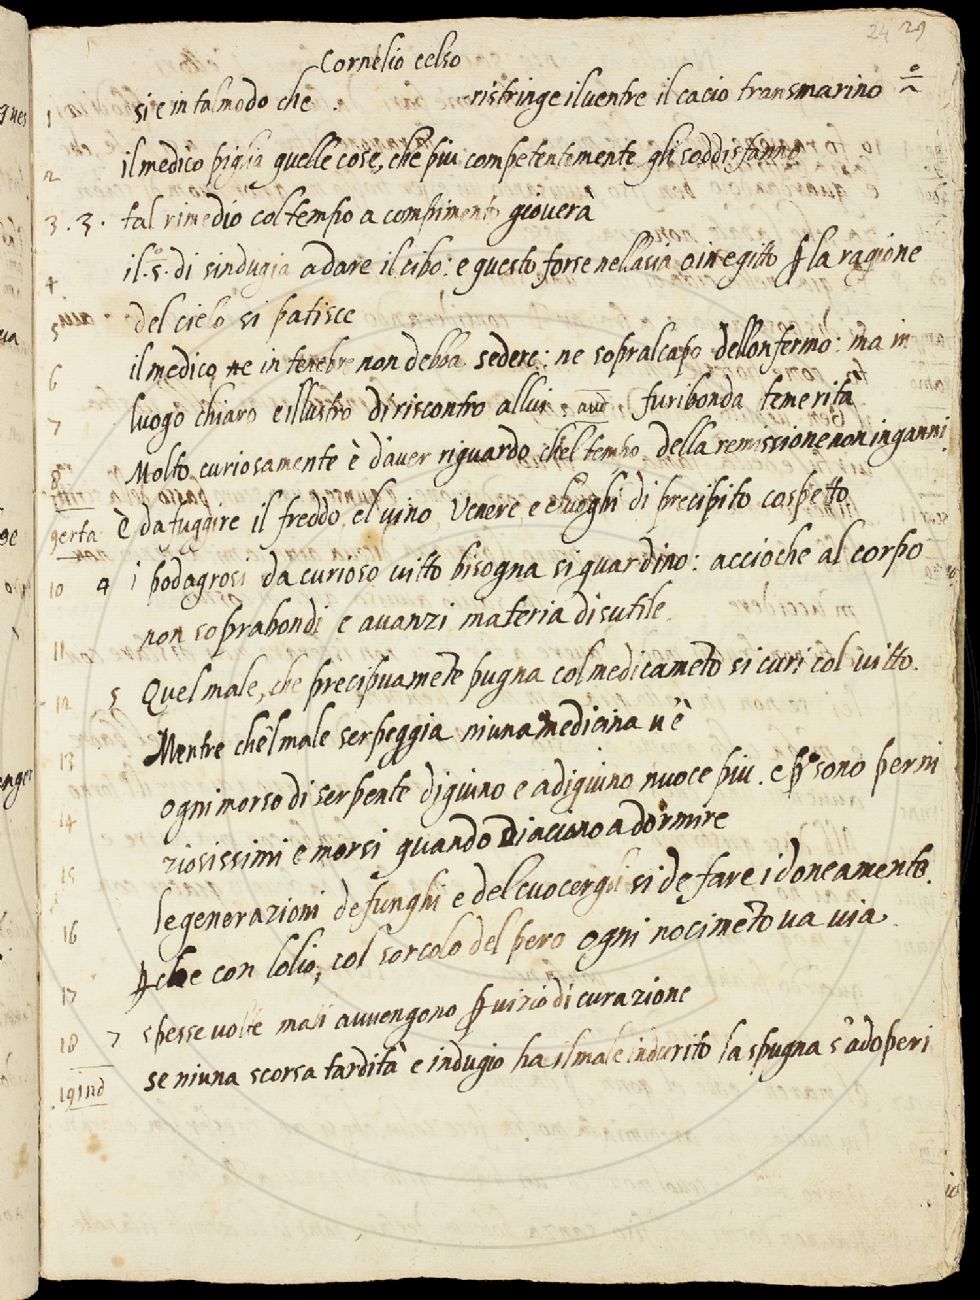 24 29
Cornelio celso
1 si e in tal modo che . ristringe il ventre il cacio transmarino
2 il medico piglia quelle cose, che piu competentemente gli soddisfanno
3 . 3 . tal rimedio col tempo a compimento gioverà
4 il .5. di s'indugia a dare il cibo: e questo forse nell asia o in egitto ꝑ la ragione
5 del cielo si patisce
6 il medico ne in tenebre non debba sedere: ne sopra l capo dell onfermo: ma in
7 luogo chiaro e illustro di riscontro allui . aud. furibonda temerità
8 Molto curiosamente è d'aver riguardo chel tempo della remissione non inganni
9 erta È da fuggire il freddo, el vino, Venere, e e luoghi di precipito cospetto
10 4 i podagrosi da curioso vitto bisogna si guardino: accioche al corpo
11 non soprabondi e avanzi materia disutile.
12 5 Quel male, che precipuamete pugna col medicameto si curi col vitto.
13 Mentre chel male serpeggia niuna medicina v'è
14 ogni morso di serpente digiuno e a digiuno nuoce piu. e ꝑo sono perni
15 ziosissimi e morsi quando diacciono a dormire
16 le generazioni de funghi e del si de fare idoneamento.
17 ꝑche con lolio, col sorcolo del pero ogni nocimeto va via.
18 7 spesse volte mali avvengono ꝑ vizio di curazione
19 ind se niuna scorsa tardità e indugio ha il male indurito la spugna s'adoperi